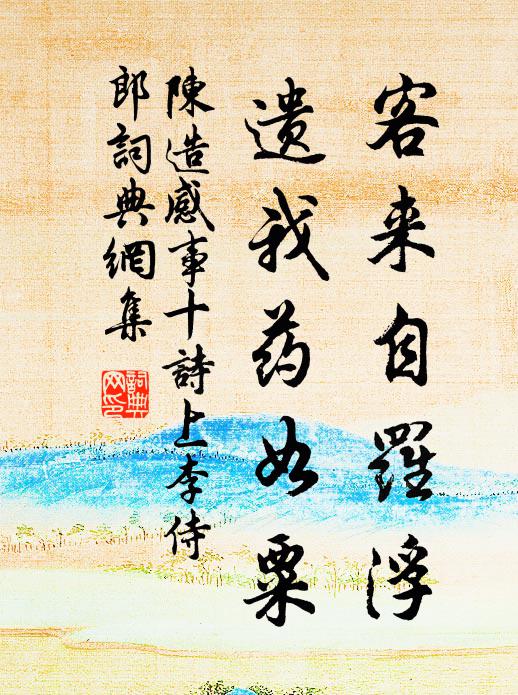 客来自羅浮
遗我药如粟
陳造感事十詩上李侍
郎詞典網集
詞典
网印